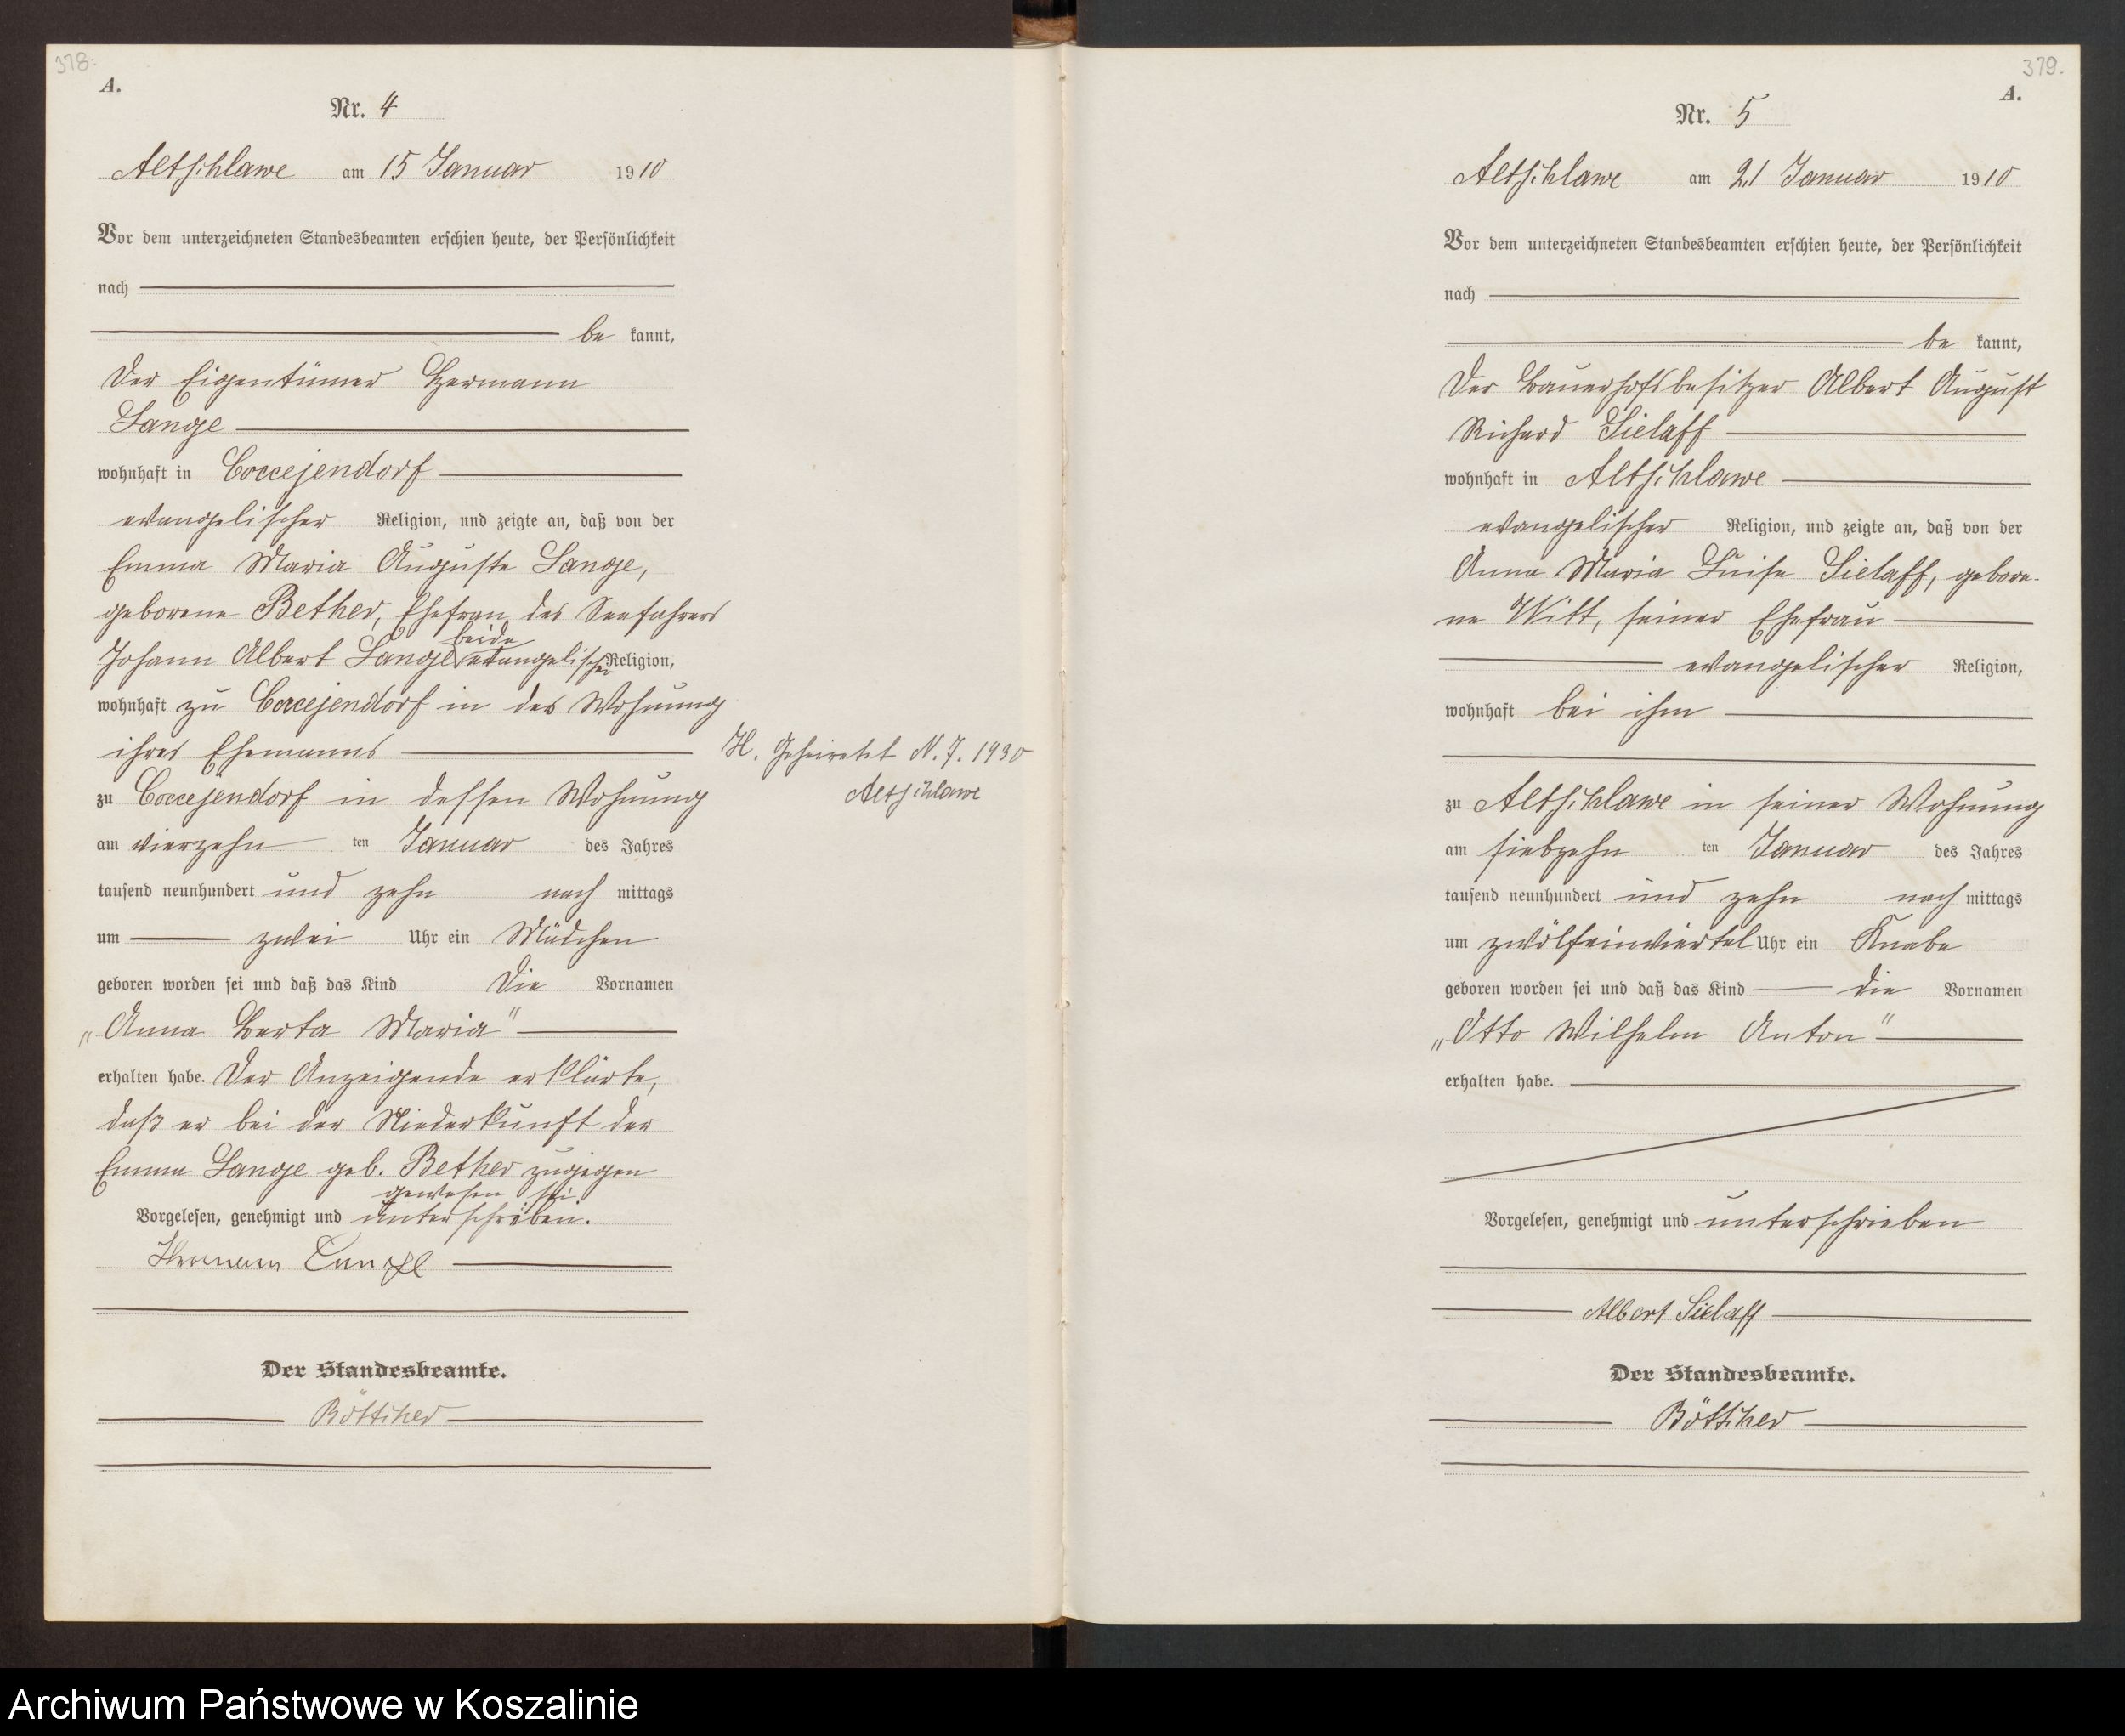 378.
A.
Nr. 4
Altschlawe am 15 Januar 1910
Vor dem unterzeichneten Standesbeamten erschien heute, der Persönlichkeit
nach
be kannt,
der Eigentümer Hermann
Lange
wohnhaft in Coccejendorf
evangelischer Religion, und zeigte an, daß von der
Emma Maria Auguste Lange,
geborene Bether, Ehefrau des Seefahrers
beide
Johann Albert Lange evangelischer Religion,
wohnhaft zu Coccejendorf in der Wohnung
ihres Ehemanns
zu Coccejendorf in dessen Wohnung
am vierzehn ten Januar des Jahres
tausend neunhundert und zehn nach mittags
um zwei Uhr ein Mädchen
geboren worden sei und daß das Kind die Vornamen
„Anna Berta Maria"
erhalten habe. Der Anzeigende erklärte,
daß er bei der Niederkunft der
Emma Lange geb. Bether zugegen
gewesen sei
Vorgelesen, genehmigt und unterschrieben.
Hermann Lange
Der Standesbeamte.
Böttcher
H. Geheiratet N. 7. 1930
Altschlawe
379.
A.
Nr. 5
Altschlawe am 21 Januar 1910
Vor dem unterzeichneten Standesbeamten erschien heute, der Persönlichkeit
nach
be kannt,
der Bauerhofsbesitzer Albert August
Richard Sielaff
wohnhaft in Altschlawe
evangelischer Religion, und zeigte an, daß von der
Anna Maria Luise Sielaff, gebore-
ne Witt, seiner Ehefrau
evangelischer Religion,
wohnhaft bei ihm
zu Altschlawe in seiner Wohnung
am siebzehn ten Januar des Jahres
tausend neunhundert und zehn nach mittags
um zwölfeinviertel Uhr ein Knabe
geboren worden sei und daß das Kind die Vornamen
„Otto Wilhelm Anton"
erhalten habe.
Vorgelesen, genehmigt und unterschrieben
Albert Sielaff
Der Standesbeamte.
Böttcher
Archiwum Państwowe w Koszalinie